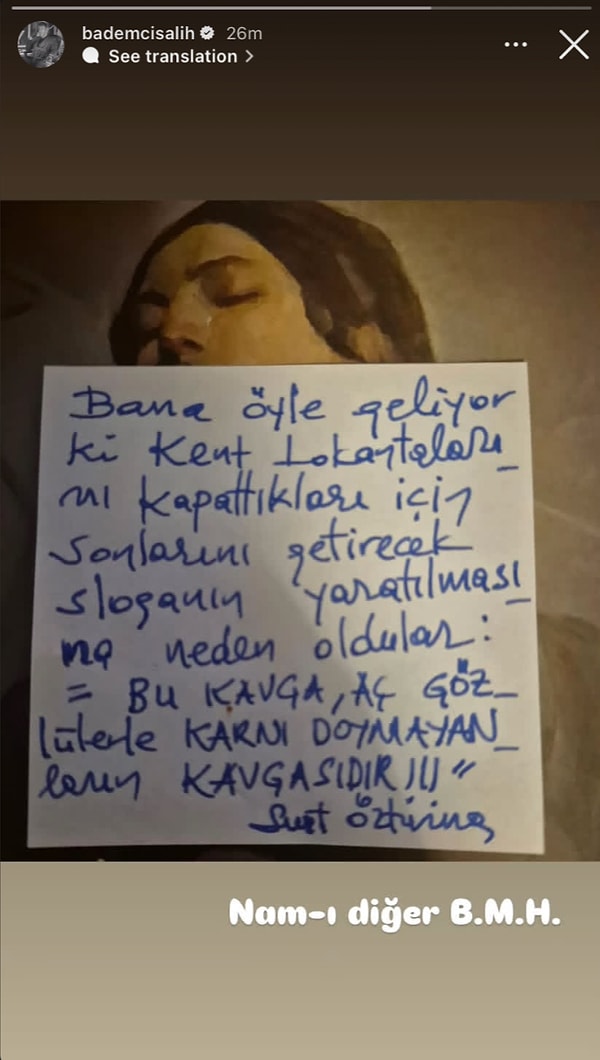 bademcisalih 26m
See translation
Bana öyle geliyor
ki Kent Lokantaları_
nı kapattıkları için
sonlarını getirecek
sloganın yaratılması_
na neden oldular:
= BU KAVGA, AÇ GÖZ_
lülerle KARNI DOYMAYAN_
ların KAVGASIDIR!!! "
Nam-ı diğer B.M.H.